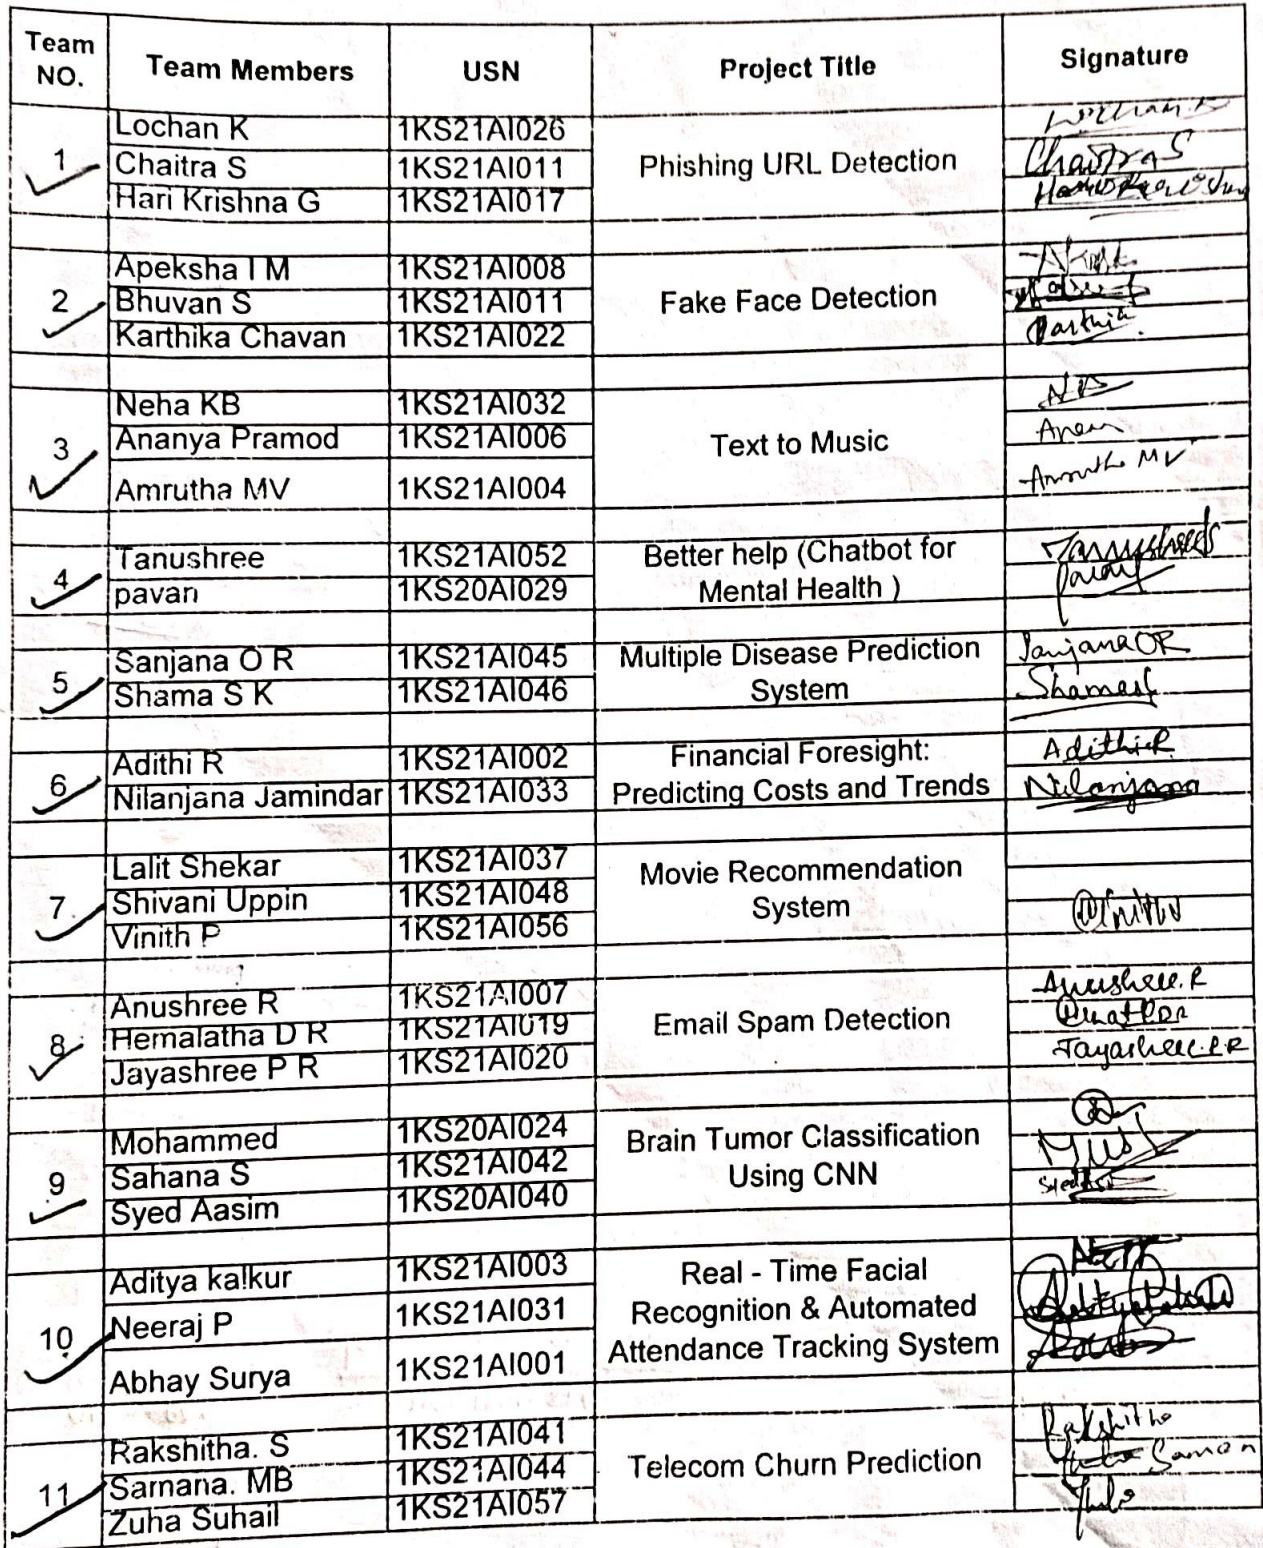 Team NO. Team Members USN Project Title Signature
1 Lochan K 1KS21AI026 Phishing URL Detection
Chaitra S 1KS21AI011 Chaitra S
Hari Krishna G 1KS21AI017
2 Apeksha I M 1KS21AI008 Fake Face Detection
Bhuvan S 1KS21AI011
Karthika Chavan 1KS21AI022
3 Neha KB 1KS21AI032 Text to Music
Ananya Pramod 1KS21AI006
Amrutha MV 1KS21AI004 Amrutha MV
4 Tanushree 1KS21AI052 Better help (Chatbot for
pavan 1KS20AI029 Mental Health )
5 Sanjana O R 1KS21AI045 Multiple Disease Prediction Sanjana OR
Shama S K 1KS21AI046 System
6 Adithi R 1KS21AI002 Financial Foresight: Adithi.R
Nilanjana Jamindar 1KS21AI033 Predicting Costs and Trends Nilanjana
7 Lalit Shekar 1KS21AI037 Movie Recommendation
Shivani Uppin 1KS21AI048 System
Vinith P 1KS21AI056
8 Anushree R 1KS21AI007 Email Spam Detection Anushree.R
Hemalatha D R 1KS21AI019
Jayashree P R 1KS21AI020 Jayashree.P.R
9 Mohammed 1KS20AI024 Brain Tumor Classification
Sahana S 1KS21AI042 Using CNN
Syed Aasim 1KS20AI040
10 Aditya kalkur 1KS21AI003 Real - Time Facial
Neeraj P 1KS21AI031 Recognition & Automated
Abhay Surya 1KS21AI001 Attendance Tracking System
11 Rakshitha. S 1KS21AI041 Telecom Churn Prediction Rakshitha
Samana. MB 1KS21AI044
Zuha Suhail 1KS21AI057